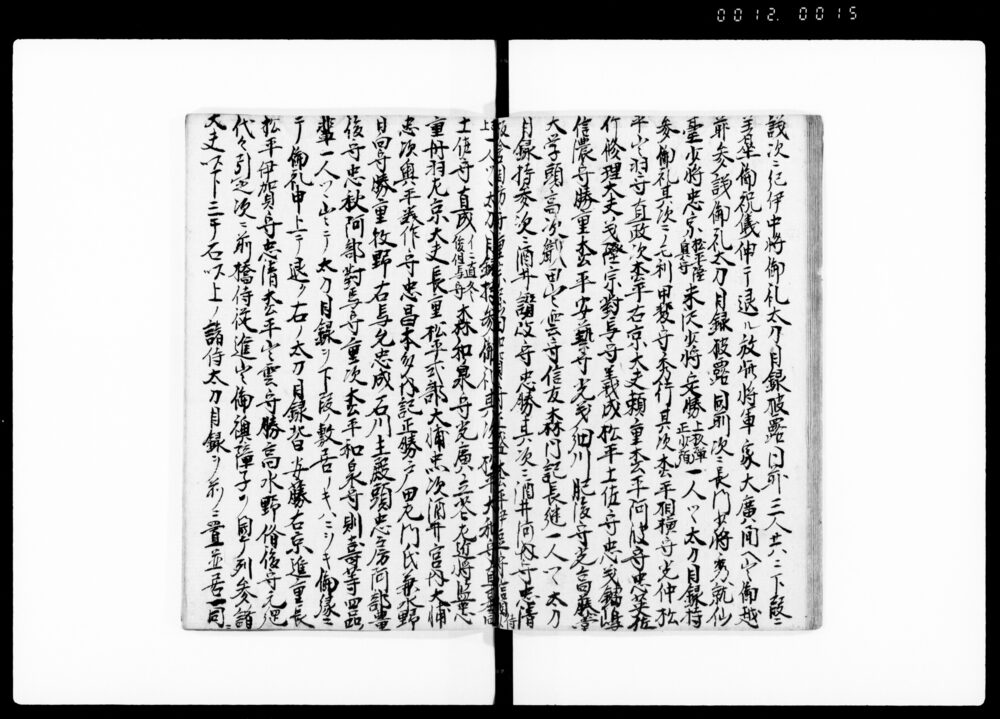 0012. 0015
議次ニ紀伊中将御礼太刀目録披露同前三人共ハ二下段ニ
着座御祝儀伸テ退ル于時将軍家大廣間へ出御越
前参議御礼太刀目録披露同前次ニ長門少将秀就仙
臺少将忠宗松平陸奥守米沢少将定勝上杉弾正少弼一人ツヽ太刀目録持
参御礼其次ニ毛利甲斐守秀行其次松平相模守光仲松
平出羽守直政次松平右京大夫頼重松平阿波守忠英佐
竹修理大夫義隆宗對馬守義成松平土佐守忠義鍋嶋
信濃守勝重松平安藝守光晟細川肥後守光尚藤堂
大学頭高次織田出雲守信友森内記長継一人ツヽ太刀
目録持参次ニ酒井讃岐守忠勝其次ニ酒井河内守忠清
一人ツヽ太刀目録持参御礼其次ニ松平大和守直基
土佐守直良森和泉守光廣立花左近将監忠
重丹羽左京大夫長重松平式部大輔忠次酒井宮内大輔
忠次奥平美作守忠昌本多内記正勝戸田左門氏兼水野
日向守勝重牧野右馬允忠成石川主殿頭忠房阿部豊
後守忠秋阿部對馬守重次松平和泉守則壽等四品
輩一人ツヽ出テ太刀目録ヲ下段ノ敷居ノキハニヲキ御縁ニ
テ御礼申上テ退ク右ノ太刀目録皆安藤右京進重長
松平伊賀守忠清松平出雲守勝高水野備後守元綱
代々引之次ニ前橋侍従進出御襖障子ヲ開ク列参諸
大夫以下三千石以上ノ諸侍太刀目録ヲ前ニ置並居一同ニ